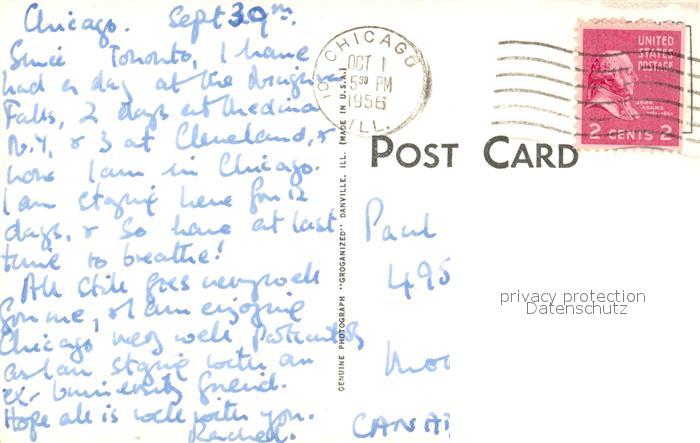 Chicago. Sept 30th.
Since Toronto, I have
had a day at the
Falls, 2 days at Medina
N.Y. & 3 at Cleveland, &
now I am in Chicago.
I am staying here for 12
days, & so have at last
time to breathe!
All still goes very well
for me, & I am enjoying
Chicago very well particularly
as I am staying with an
ex-University friend.
Hope all is well with you.
Rachel.
GENUINE PHOTOGRAPH "GROGANIZED" DANVILLE, ILL. (MADE IN U.S.A.)
CHICAGO
OCT 1
5 30 PM
1956
ILL.
UNITED
STATES
POSTAGE
JOHN
ADAMS
2 CENTS 2
POST CARD
Paul
495
CANA
privacy protection
Datenschutz